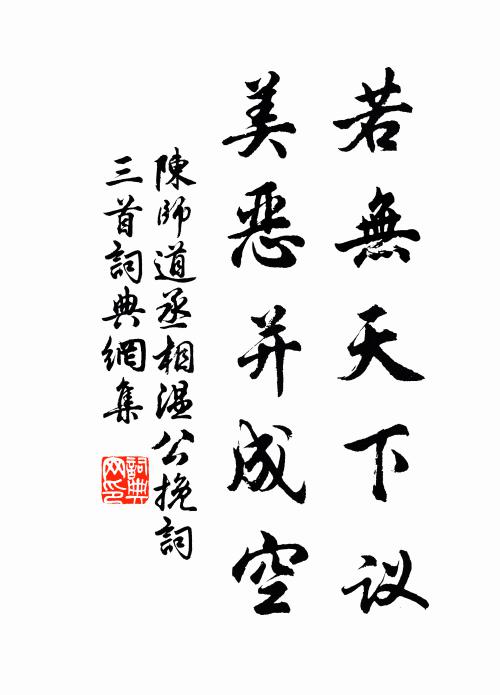 若無天下议
美惡并成空
陳師道丞相温公挽詞
三首詞典網集
詞典
网印